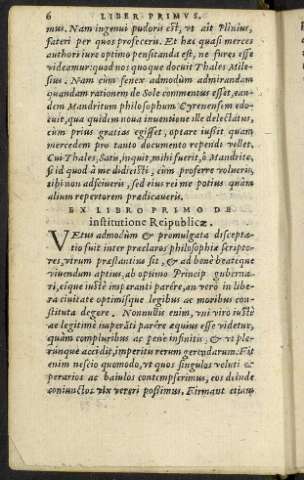 6 LIBER PRIMVS.
mus. Nam ingenui pudoris est, vt ait Plinius,
fateri per quos profeceris. Et hæc quasi merces
authori iure optimo pensitanda est, ne fures esse
videamur: quod nos quoque docuit Thales Mile-
sius. Nam cùm senex admodùm admirandam
quandam rationem de Sole commentus esset, ean-
dem Mandritum philosophum Cyrenensem edo-
cuit, qua quidem noua inuentione ille delectatus,
cùm prius gratias egisset, optare iußit quam
mercedem pro tanto documento rependi vellet.
Cui Thales, Satis, inquit, mihi fuerit, ô Mandrite,
si id quod à me didicisti, cùm proferre volueris,
tibi non adsciueris, sed eius rei me potius quàm
alium repertorem prædicaueris.
EX LIBRO PRIMO DE
institutione Reipublicæ.
VEtus admodùm & promulgata discepta-
tio fuit inter præclaros philosophiæ scripto-
res, vtrum præstantius sit, & ad benè beateque
viuendum aptius, ab optimo Princip guberna-
ri, eique iustè imperanti parêre, an verò in libe-
ra ciuitate optimisque legibus ac moribus con-
stituta degere. Nonnullis enim, vni viro iustè
ac legitimè imperãti parêre æquius esse videtur,
quàm compluribus ac penè infinitis; & vt ple-
runque accidit, imperitis rerum gerendarum. Fit
enim nescio quomodo, vt quos singulos veluti
perarios ac baiulos contempserimus, eos deinde
coniunctos vix vereri poßimus. Firmant etiam